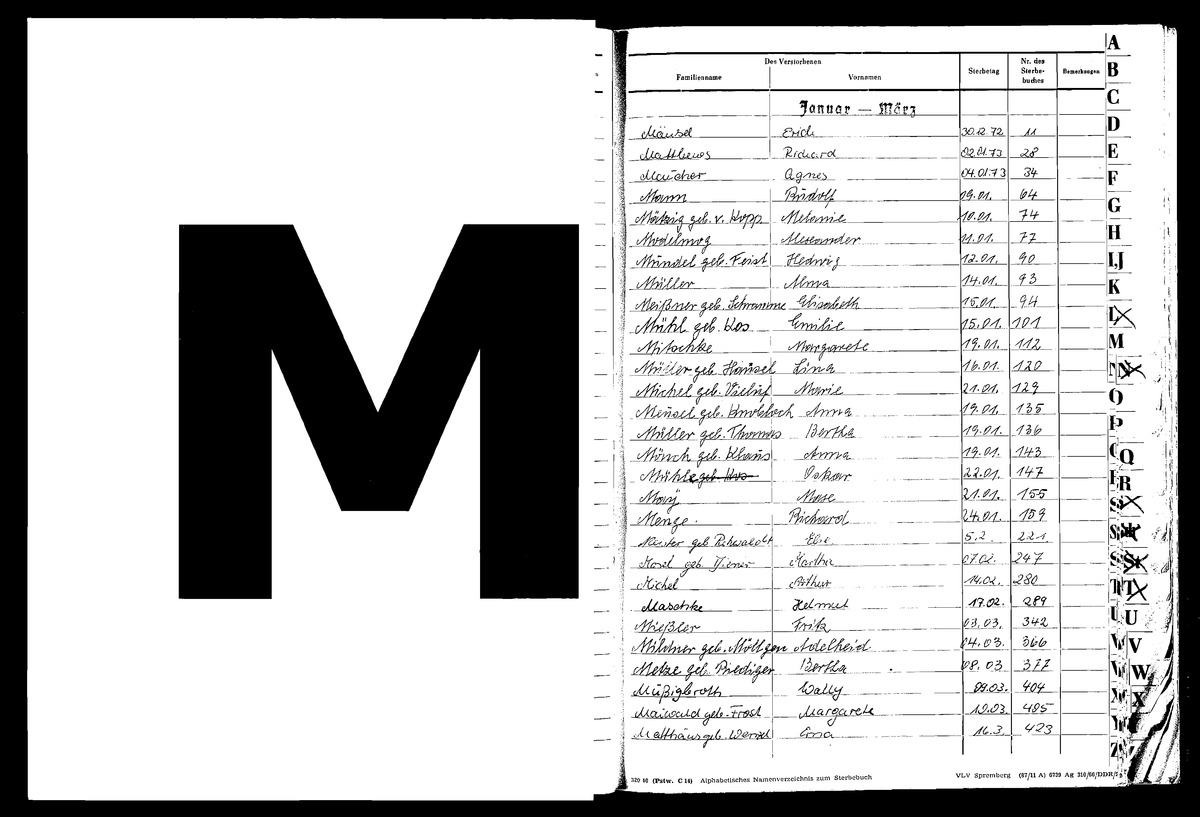 M
Des Verstorbenen
Familienname Vornamen Sterbetag Nr. des Sterbe- buches Bemerkungen
Januar — März
Mänsel Erich 30.12.72 11
Matthews Richard 02.01.73 28
Maucher Agnes 04.01.73 34
Mann Rudolf 09.01. 64
geb. v. Kopp Melanie 10.01. 74
Alexander 11.01. 77
Mündel geb. Feist Hedwig 12.01. 90
Müller Alma 14.01. 93
Meißner geb. Schramme Elisabeth 15.01. 94
Mühl geb. Kos Emilie 15.01. 101
Mitschke Margarete 19.01. 112
Müller geb. Hänsel Lina 16.01. 120
Michel geb. Vielus Marie 21.01. 129
Mensel geb. Knobloch Anna 19.01. 135
Müller geb. Thomas Bertha 19.01. 136
Mönch geb. Klaus Anna 19.01. 143
Mühle geb. Kos Oskar 22.01. 147
May 21.01. 155
Menge. Richard 24.01. 159
geb 5.2. 221
geb. Martha 07.02. 247
Michel Arthur 14.02. 280
Maschke Helmut 17.02. 289
Mießler Fritz 03.03. 342
Mildner geb. Möltgen Adelheid 04.03. 366
Metze geb. Prediger Bertha 08.03 377
Müßigbroth Wally 09.03. 404
Maiwald geb. Frost Margarete 10.03. 405
Matthäus geb. Wenzel 16.3. 423
320 16 (Patw. C 16) Alphabetisches Namenverzeichnis zum Sterbebuch VLV Spremberg (87/11 A) 6739 Ag 310/66/DDR
A
B
C
D
E
F
G
H
I,J
K
L
M
N
O
P
Q
R
S
T
U
V
W
X
Y
Z